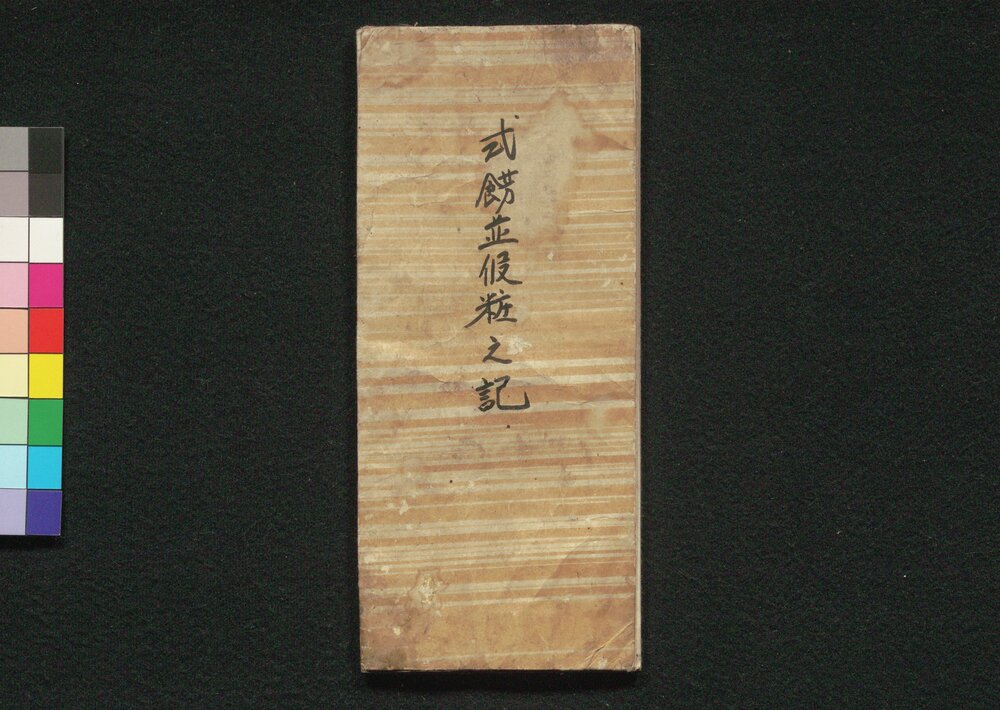 式餝並假粧之記